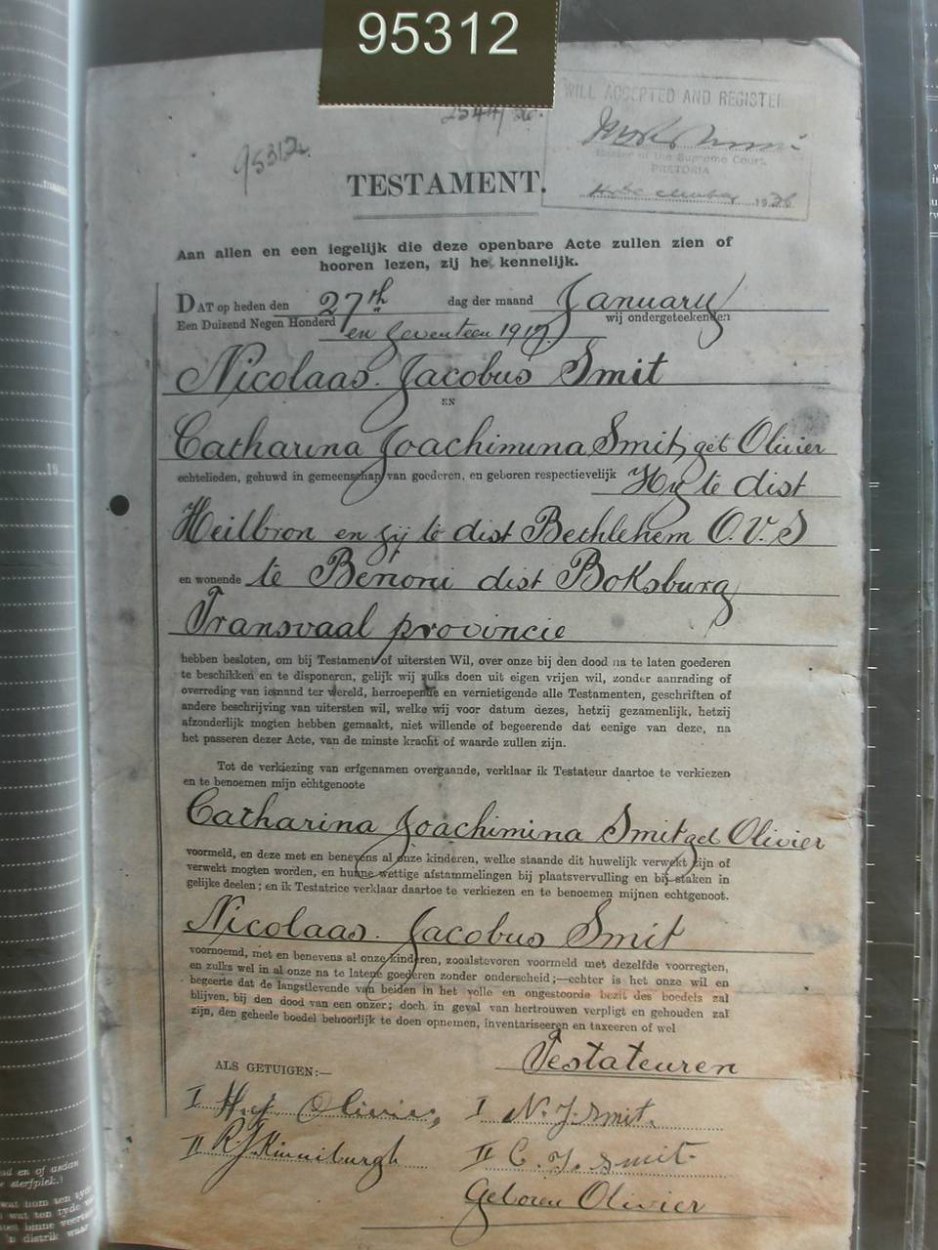 95312
95312
WILL ACCEPTED AND REGISTE
Master of the Supreme Court,
PRETORIA
1926
TESTAMENT.
Aan allen en een iegelijk die deze openbare Acte zullen zien of
hooren lezen, zij he kennelijk.
DAT op heden den 27th dag der maand January
Een Duizend Negen Honderd en Seventeen 1917 wij ondergeteekenden
Nicolaas Jacobus Smit
EN
Catharina Joachimina Smit, geb Olivier
echtelieden, gehuwd in gemeenschap van goederen, en geboren respectievelijk Hy te dist
Heilbron en zij te dist Bethlehem O.V.S
en wonende te Benoni dist Boksburg
Transvaal provincie
hebben besloten, om bij Testament of uitersten Wil, over onze bij den dood na te laten goederen
te beschikken en te disponeren, gelijk wij zulks doen uit eigen vrijen wil, zonder aanrading of
overreding van iemand ter wereld, herroepende en vernietigende alle Testamenten, geschriften of
andere beschrijving van uitersten wil, welke wij voor datum dezes, hetzij gezamenlijk, hetzij
afzonderlijk mogten hebben gemaakt, niet willende of begeerende dat eenige van deze, na
het passeren dezer Acte, van de minste kracht of waarde zullen zijn.
Tot de verkiezing van erfgenamen overgaande, verklaar ik Testateur daartoe te verkiezen
en te benoemen mijn echtgenoote
Catharina Joachimina Smit geb Olivier
voormeld, en deze met en benevens al onze kinderen, welke staande dit huwelijk verwekt zijn of
verwekt mogten worden, en hunne wettige afstammelingen bij plaatsvervulling en bij staken in
gelijke deelen; en ik Testatrice verklaar daartoe te verkiezen en te benoemen mijnen echtgenoot.
Nicolaas Jacobus Smit
voornoemd, met en benevens al onze kinderen, zooalstevoren voormeld met dezelfde voorregten,
en zulks wel in al onze na te latene goederen zonder onderscheid;—echter is het onze wil en
begeerte dat de langstlevende van beiden in het volle en ongestoorde bezit des boedels zal
blijven, bij den dood van een onzer; doch in geval van hertrouwen verpligt en gehouden zal
zijn, den geheele boedel behoorlijk te doen opnemen, inventariseeren en taxeeren of wel
Testateuren
ALS GETUIGEN:—
I H.J. Olivier, I N. J. Smit.
II R.J. Kinniburgh II C. J. Smit
Geboren Olivier